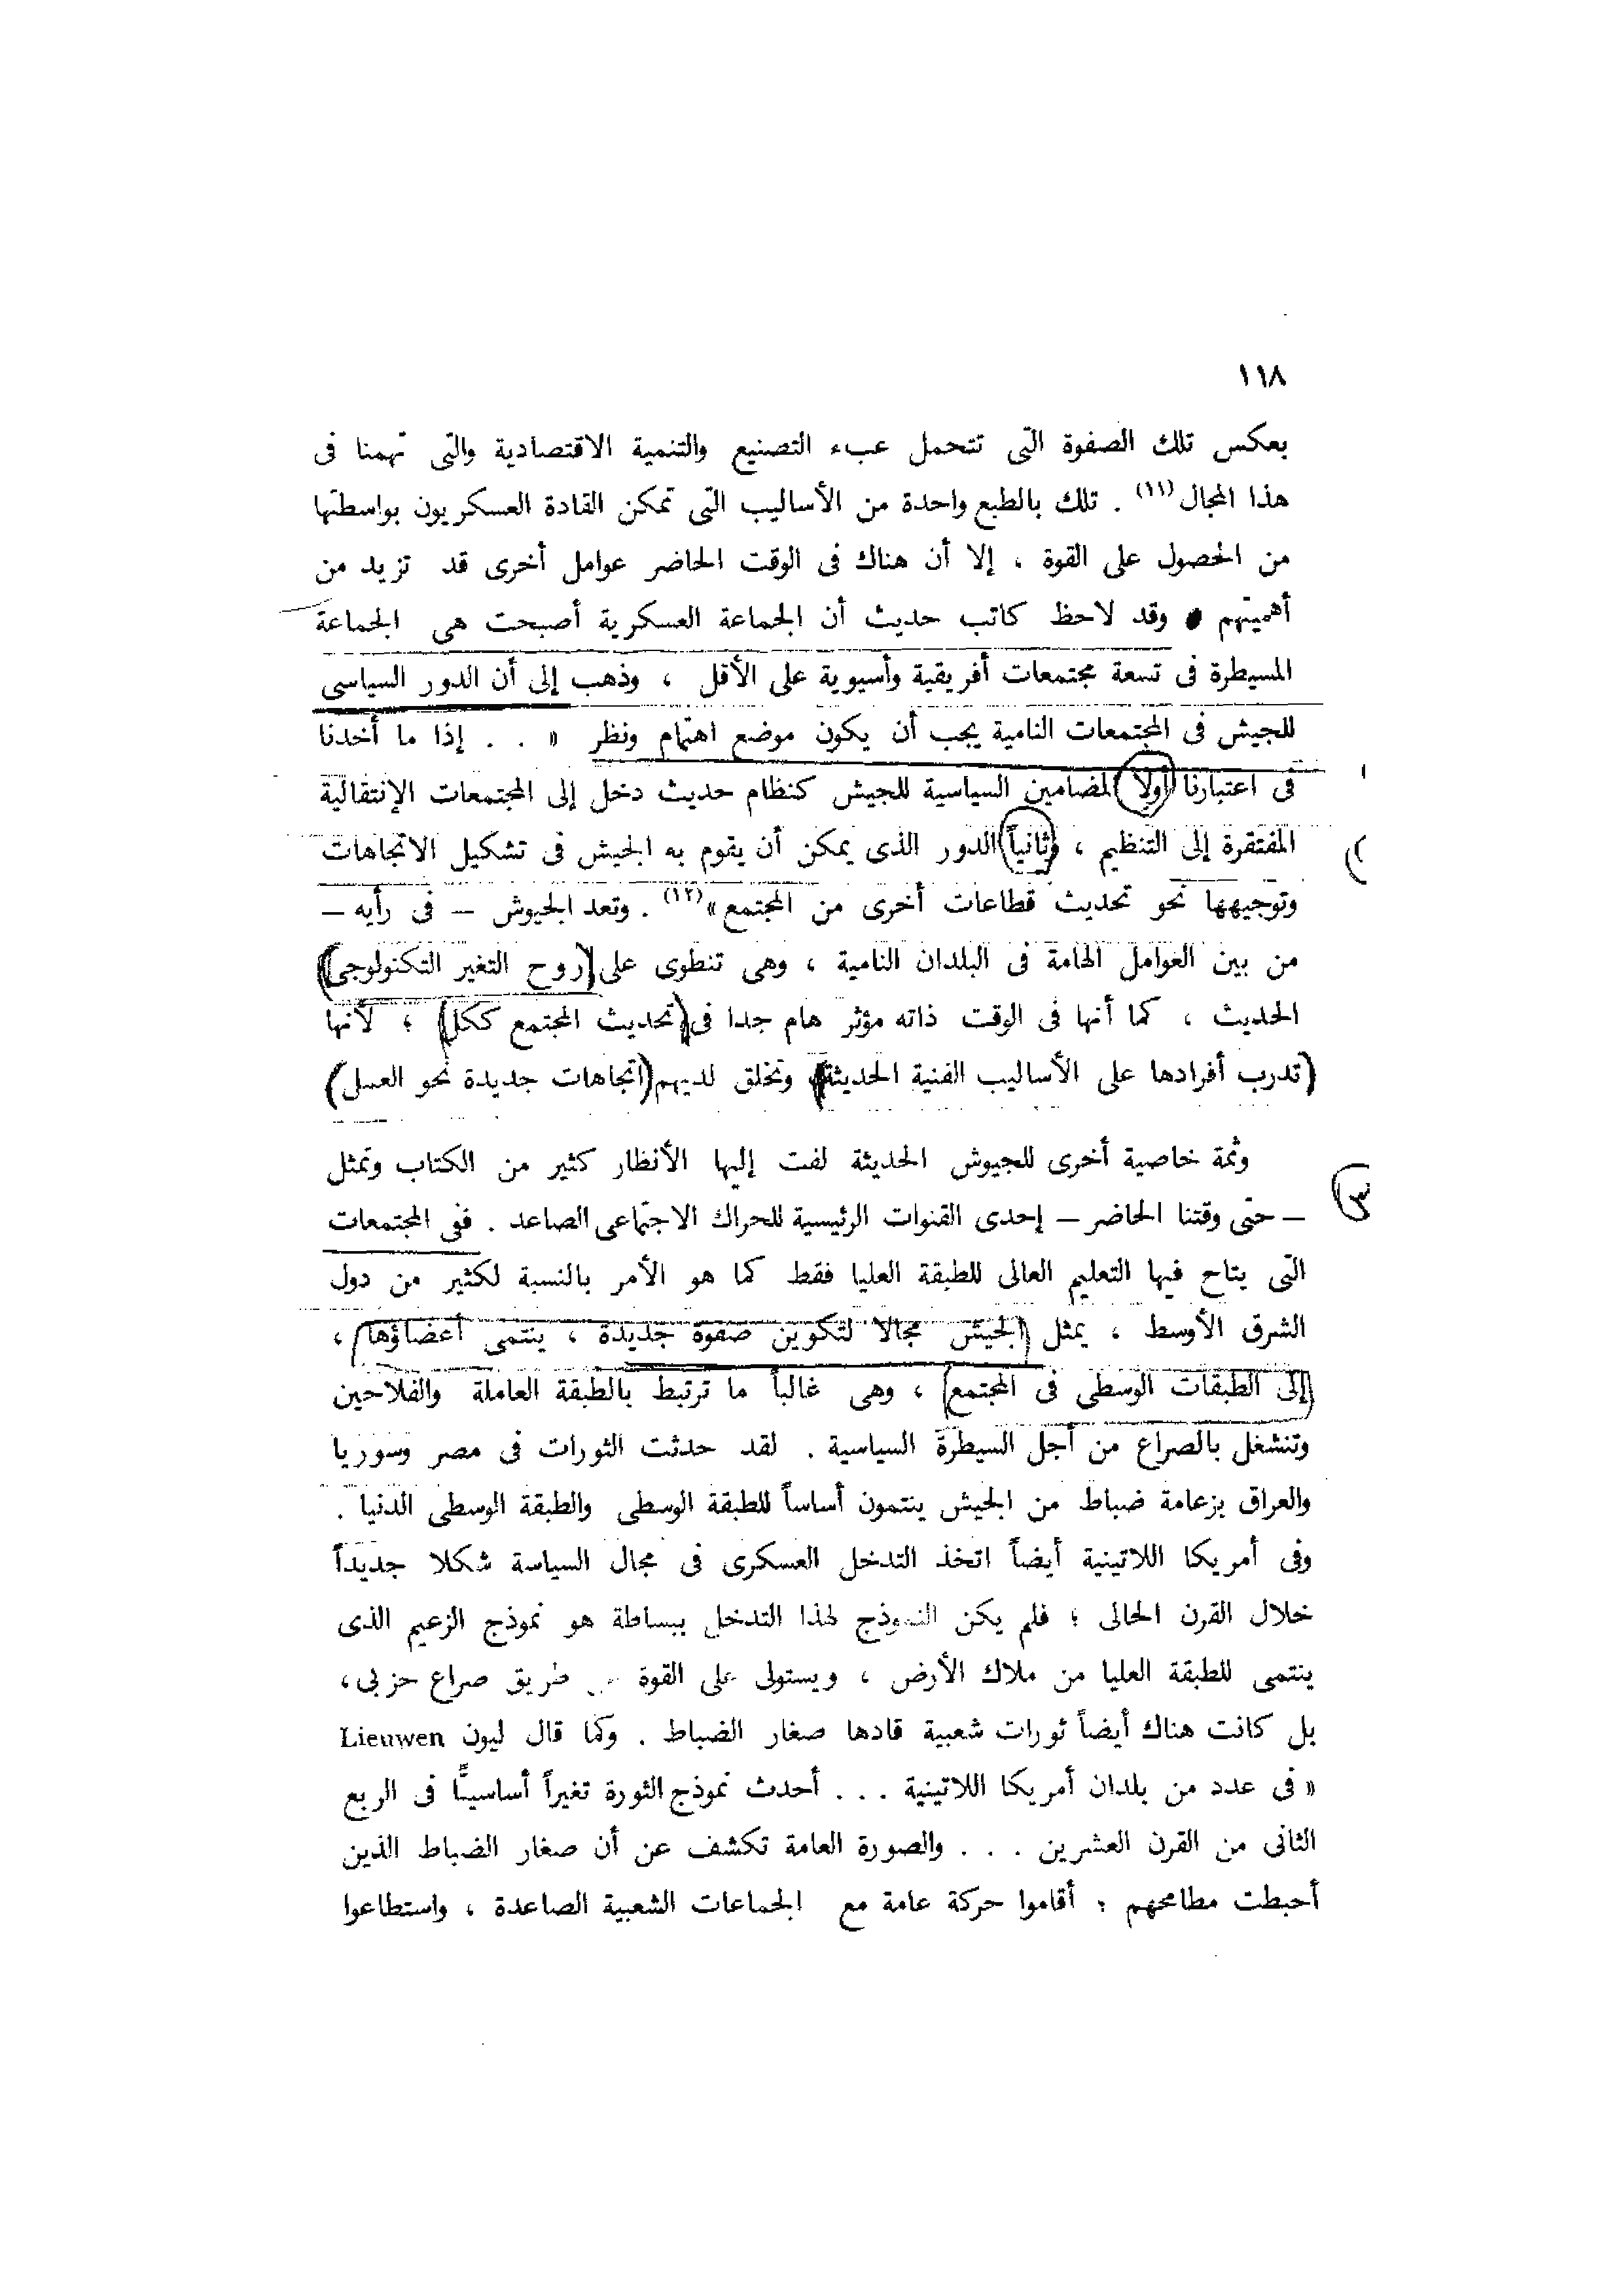 ١١٨
بعكس تلك الصفوة التى تتحمل عبء التصنيع والتنمية الاقتصادية والتى تهمنا فى
هذا المجال (١١) . تلك بالطبع واحدة من الأساليب التى تمكن القادة العسكريون بواسطتها
من الحصول على القوة ، إلا أن هناك فى الوقت الحاضر عوامل أخرى قد تزيد من
أهميتهم . وقد لاحظ كاتب حديث أن الجماعة العسكرية أصبحت هى الجماعة
المسيطرة فى تسعة مجتمعات أفريقية وأسيوية على الأقل ، وذهب إلى أن الدور السياسى
للجيش فى المجتمعات النامية يجب أن يكون موضع اهتمام ونظر « . . إذا ما أخدنا
١
فى اعتبارنا أولا المضامين السياسية للجيش كنظام حديث دخل إلى المجتمعات الإنتقالية
المفتقرة إلى التنظيم ، وثانياً الدور الذى يمكن أن يقوم به الجيش فى تشكيل الاتجاهات
وتوجيهها نحو تحديث قطاعات أخرى من المجتمع» (١٢) . وتعد الجيوش – فى رأيه –
من بين العوامل الهامة فى البلدان النامية ، وهى تنطوى على (روح التغير التكنولوجى)
الحديث ، كما أنها فى الوقت ذاته مؤثر هام جدا فى (تحديث المجتمع ككل) ؛ لأنها
(تدرب أفرادها على الأساليب الفنية الحديثة) وتخلق لديهم (اتجاهات جديدة نحو العمل)
وثمة خاصية أخرى للجيوش الحديثة لفت إليها الأنظار كثير من الكتاب وتمثل
٣
– حتى وقتنا الحاضر – إحدى القنوات الرئيسية للحراك الاجتماعى الصاعد . ففى المجتمعات
التى يتاح فيها التعليم العالى للطبقة العليا فقط كما هو الأمر بالنسبة لكثير من دول
الشرق الأوسط ، يمثل (الجيش مجالا لتكوين صفوة جديدة ، ينتمى أعضاؤها ،
إلى الطبقات الوسطى فى المجتمع) ، وهى غالباً ما ترتبط بالطبقة العاملة والفلاحين
وتنشغل بالصراع من أجل السيطرة السياسية . لقد حدثت الثورات فى مصر وسوريا
والعراق بزعامة ضباط من الجيش ينتمون أساساً للطبقة الوسطى والطبقة الوسطى الدنيا .
وفى أمريكا اللاتينية أيضاً اتخذ التدخل العسكرى فى مجال السياسة شكلا جديداً
خلال القرن الحالى ؛ فلم يكن النموذج لهذا التدخل ببساطة هو نموذج الزعيم الذى
ينتمى للطبقة العليا من ملاك الأرض ، ويستولى على القوة طريق صراع حزبى ،
بل كانت هناك أيضاً ثورات شعبية قادها صغار الضباط . وكما قال ليون Lieuwen
« فى عدد من بلدان أمريكا اللاتينية . . . أحدث نموذج الثورة تغيراً أساسيًّا فى الربع
الثانى من القرن العشرين . . . والصورة العامة تكشف عن أن صغار الضباط الذين
أحبطت مطامحهم ؛ أقاموا حركة عامة مع الجماعات الشعبية الصاعدة ، واستطاعوا